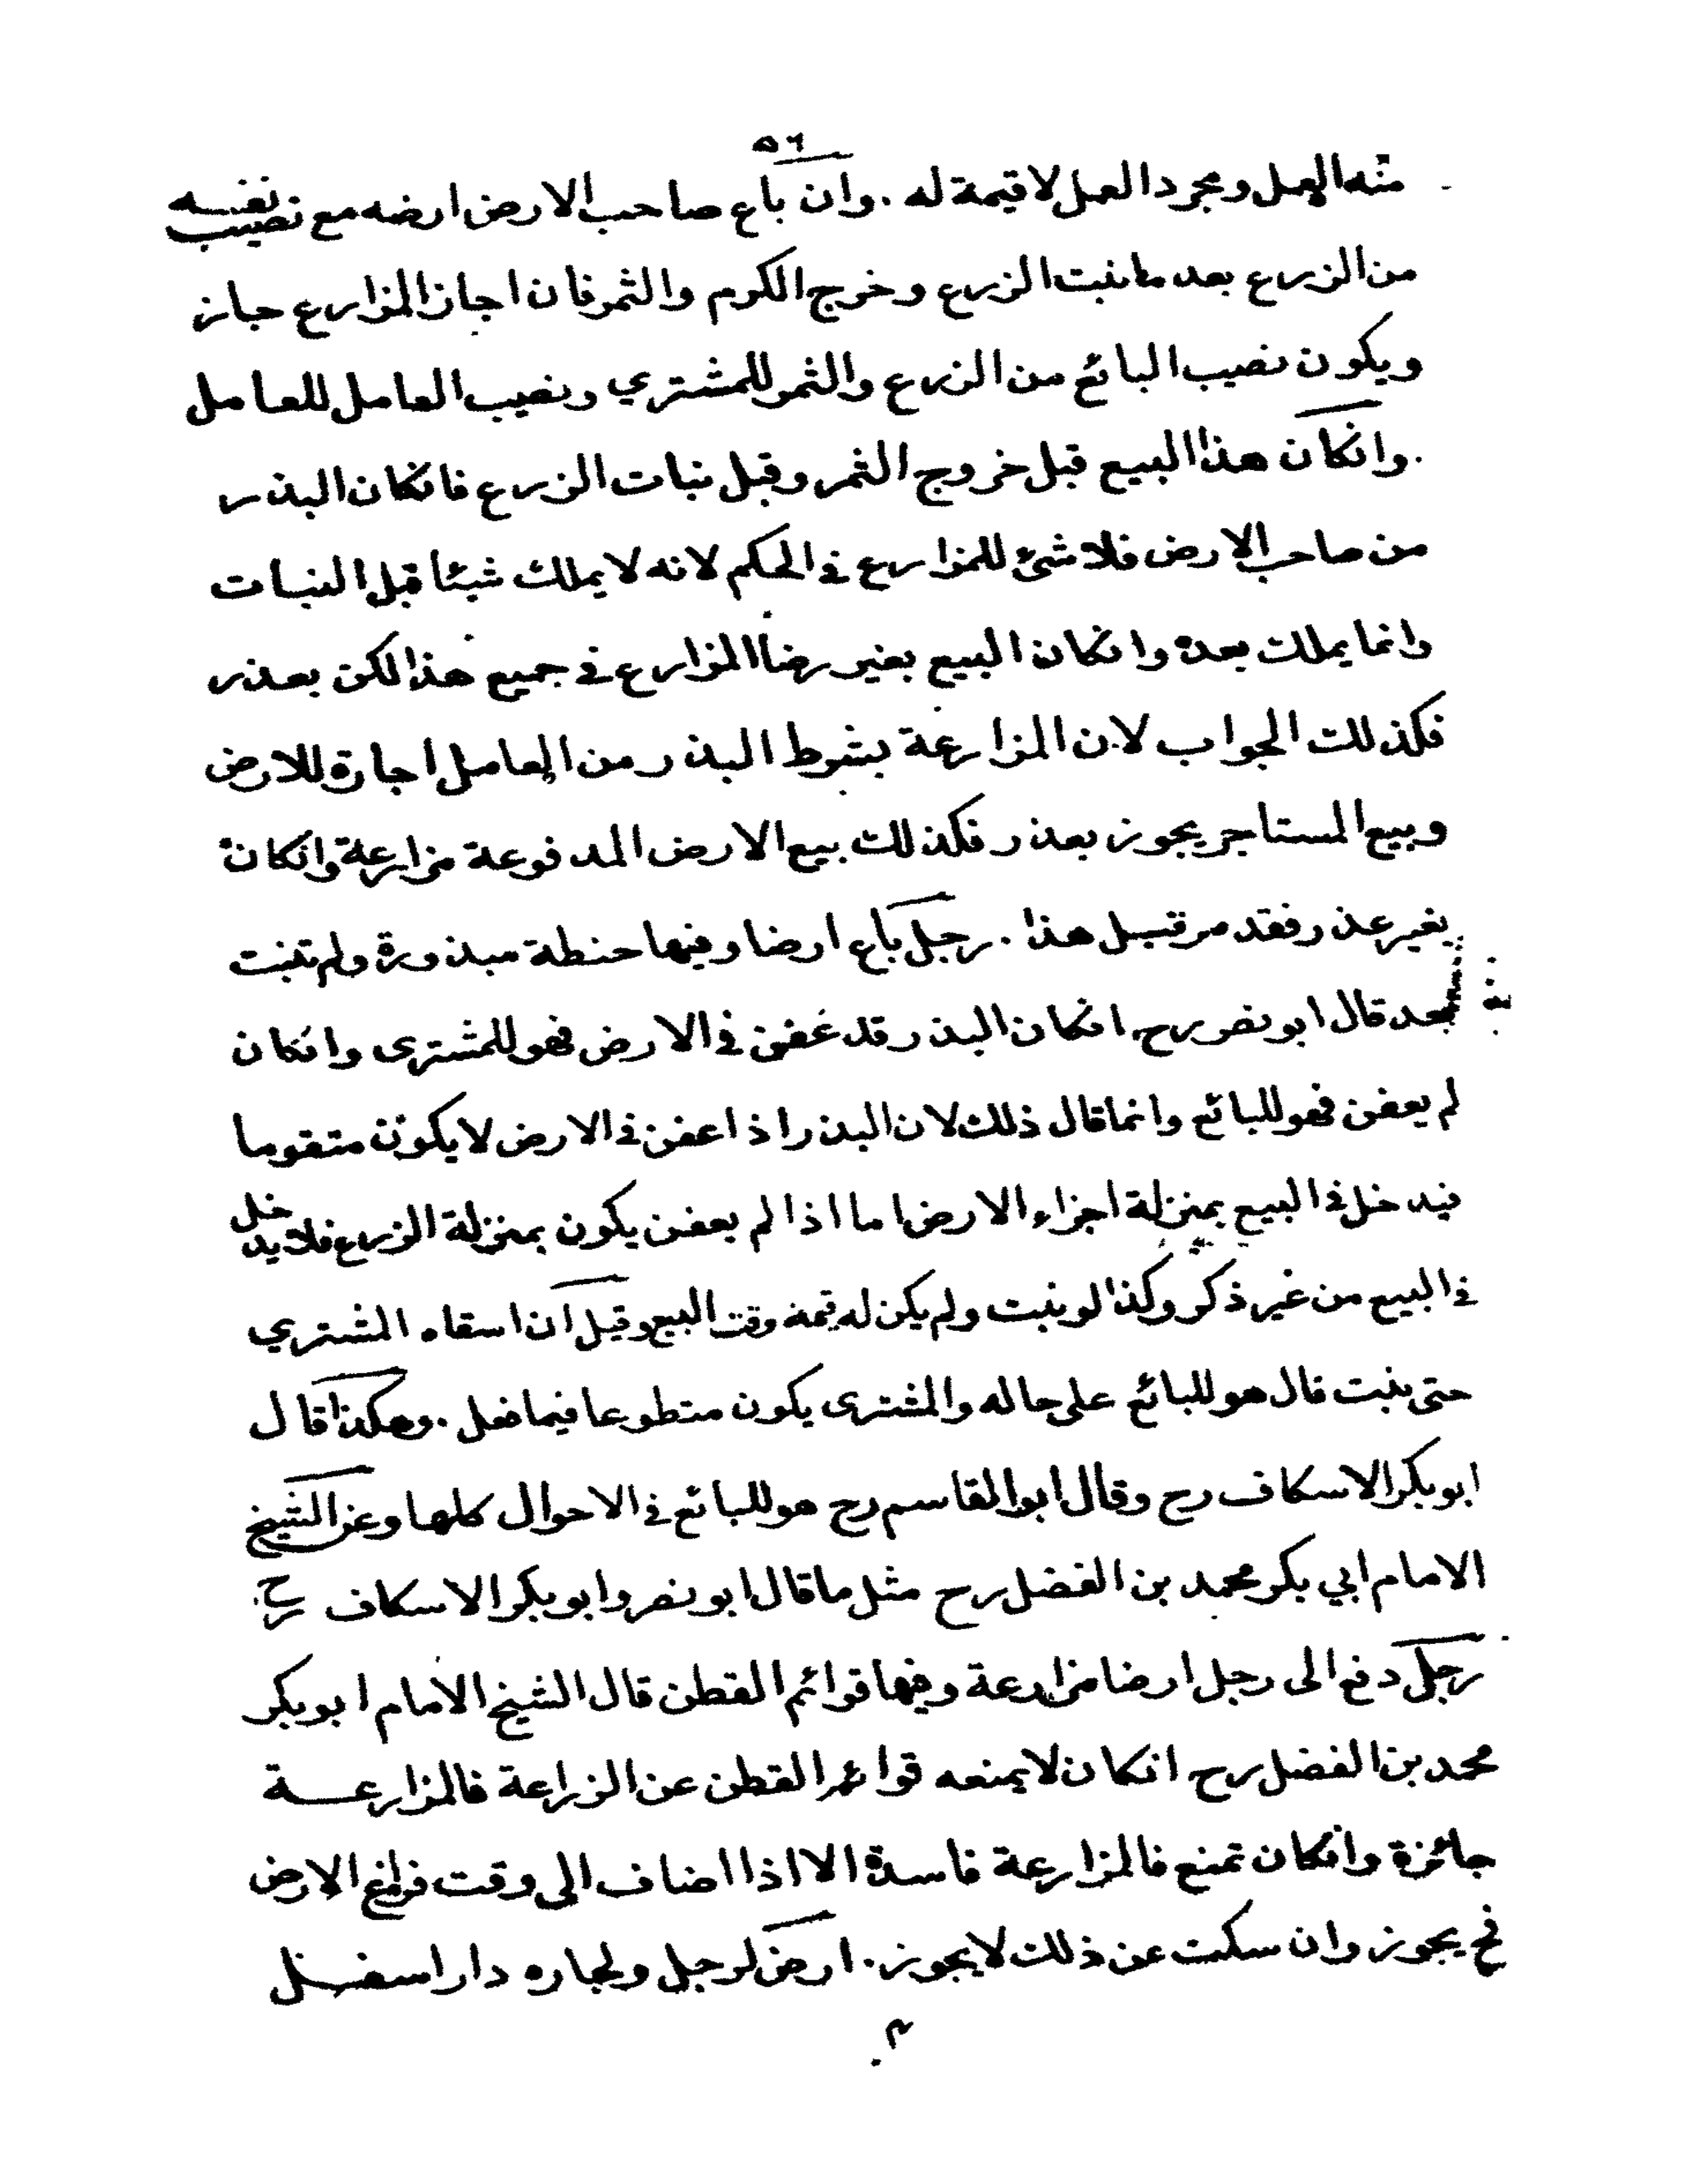 ٥٦
منه العمل ومجرد العمل لا قيمة له . وان باع صاحب الارض ارضه مع نصيب نفسه
من الزرع بعد ما نبت الزرع وخرج الكرم والثمر فان اجاز المزارع جاز
ويكون نصيب البائع من الزرع والثمر للمشتري ونصيب العامل للعامل
. وانكان هذا البيع قبل خروج الثمر وقبل نبات الزرع فانكان البذر
من صاحب الارض فلا شئ للمزارع في الحكم لانه لا يملك شيئا قبل النبات
وانما يملك بعده وانكان البيع بغير رضا المزارع في جميع هذا لكن بعذر
فكذلك الجواب لان المزارعة بشرط البذر من العامل اجارة للارض
وبيع المستاجر يجوز بعذر فكذلك بيع الارض المدفوعة مزارعة وانكان
بغير عذر فقد مر قبيل هذا . رجل باع ارضا وفيها حنطة مبذورة ولم تنبت
بعد قال ابو نصر رح انكان البذر قد عفن في الارض فهو للمشترى وانكان
لم يعفن فهو للبائع وانما قال ذلك لان البذر اذا عفن في الارض لا يكون متقوما
فيدخل في البيع بمنزلة اجزاء الارض اما اذا لم يعفن يكون بمنزلة الزرع فلا يدخل
في البيع من غير ذكر وكذا لو نبت ولم يكن له قيمة وقت البيع وقيل ان اسقاه المشتري
حتى ينبت قال هو للبائع على حاله والمشترى يكون متطوعا فيما فعل . وهكذا قال
ابو بكر الاسكاف رح وقال ابو القاسم رح هو للبائع في الاحوال كلها وعن الشيخ
الامام ابي بكر محمد بن الفضل رح مثل ما قال ابو نصر وابو بكر الاسكاف رح
رجل دفع الى رجل ارضا مزارعة وفيها قوائم القطن قال الشيخ الامام ابو بكر
محمد بن الفضل رح انكان لا يمنعه قوائم القطن عن الزراعة فالمزارعة
جائزة وانكان تمنع فالمزارعة فاسدة الا اذا اضاف الى وقت فراغ الارض
فح يجوز وان سكت عن ذلك لا يجوز . ارض لرجل ولجاره دار اسفل